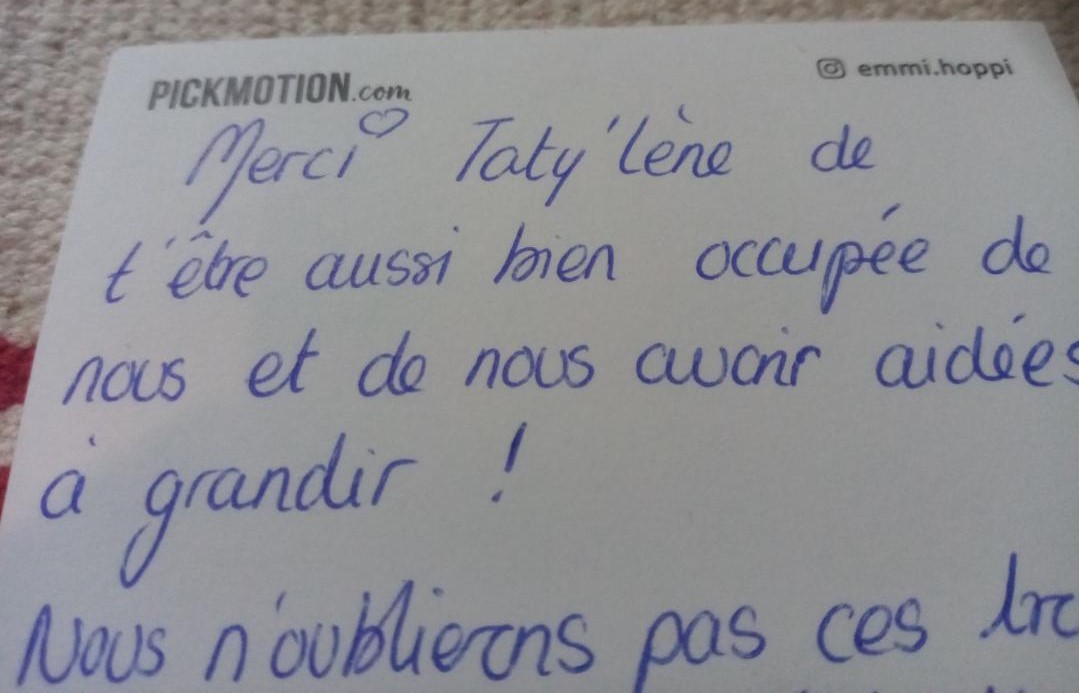 PICKMOTION.com
emmi.hoppi
Merci Taty'lène de
t'être aussi bien occupée de
nous et de nous avoir aidées
à grandir !
Nous n'oublierons pas ces